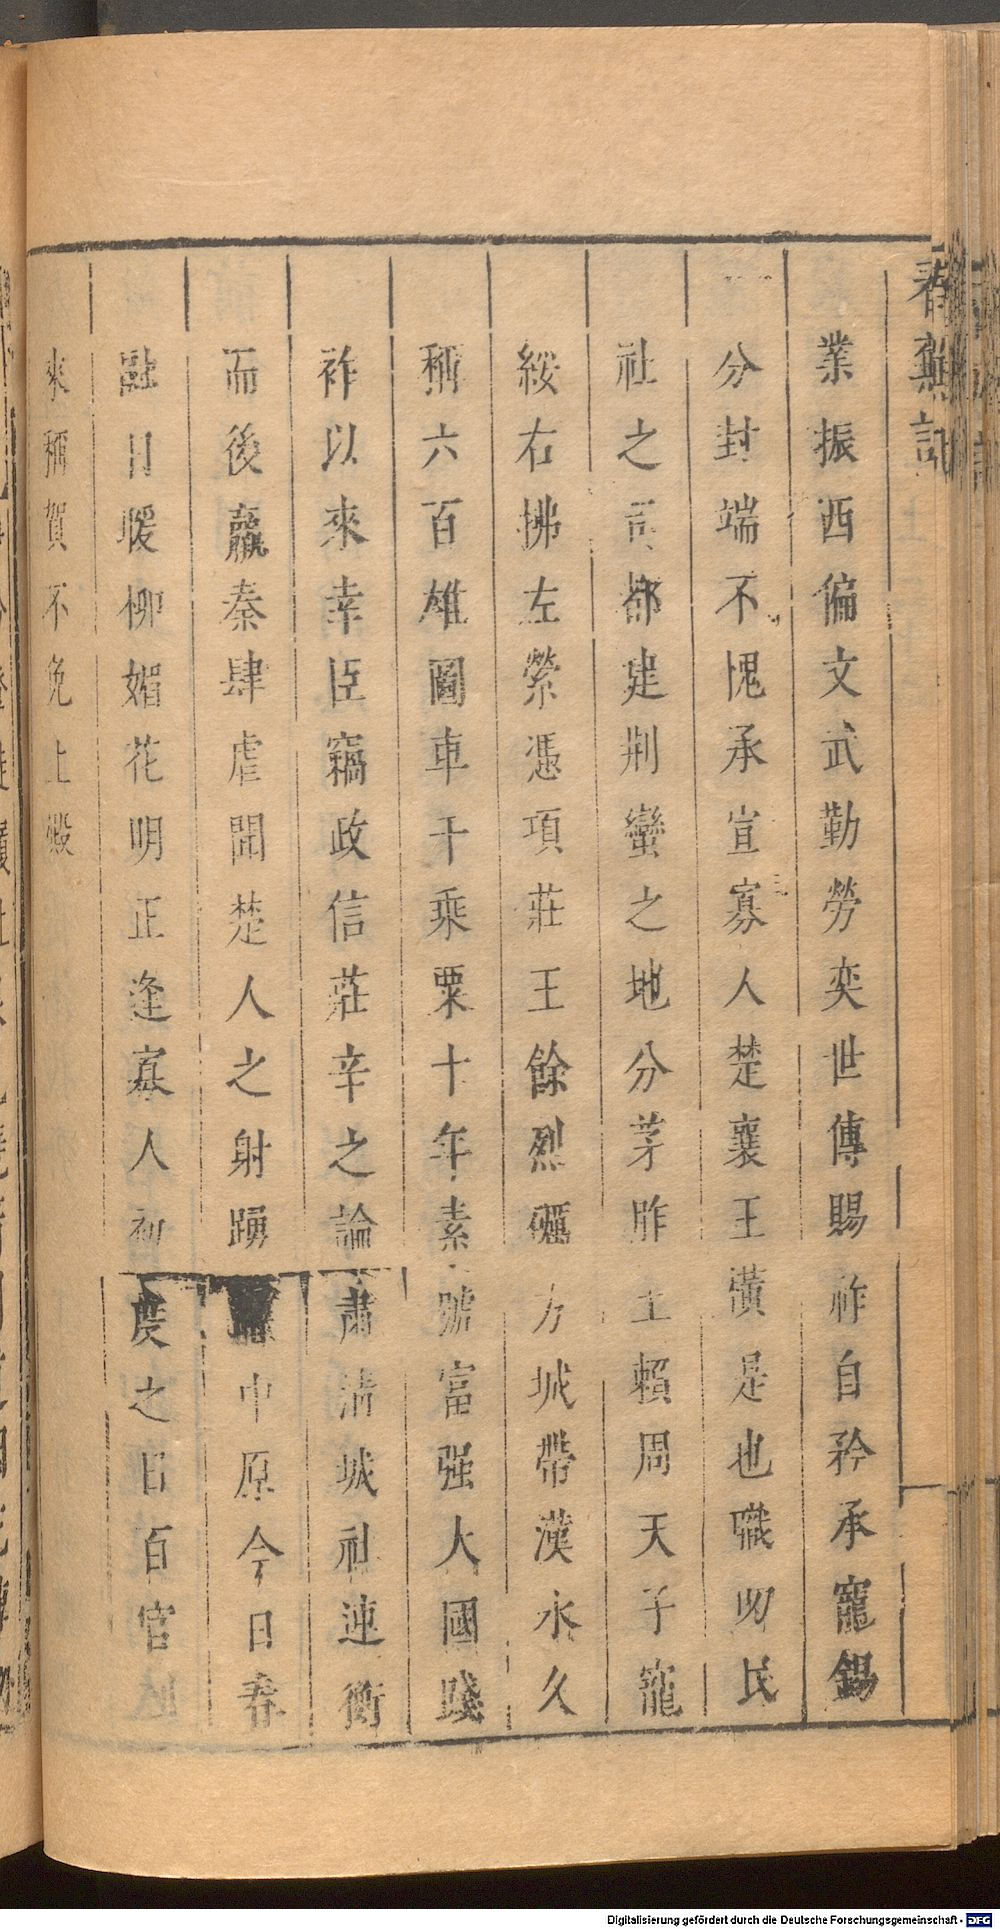 春蕪記
業振西偏文武勤勞奕世傳賜祚自矜承寵錫
分封端不愧承宣寡人楚襄王橫是也職叨民
社之司都建荆蠻之地分茅胙土賴周天子寵
綏右拂左縈憑項莊王餘烈礪方城帶漢永久
稱六百雄圖車千乘粟十年素號富强大國踐
祚以來幸臣竊政信莊辛之論肅清城社連衡
而後嬴秦肆虐聞楚人之射踴中原今日春
融日暖柳媚花明正逢寡人初度之日百官
來稱賀不免上殿
Digitalisierung gefördert durch die Deutsche Forschungsgemeinschaft - DFG